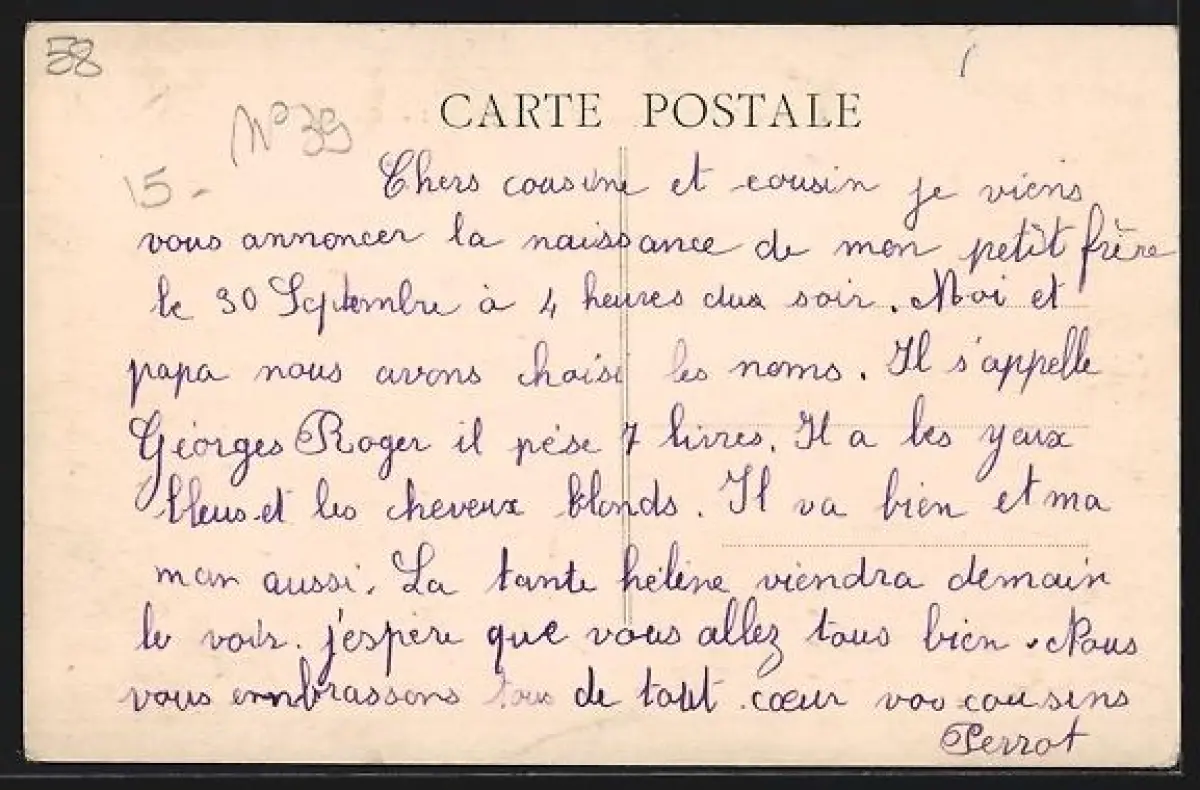 58
N° 39
CARTE POSTALE
15-
Chers cousine et cousin je viens
vous annoncer la naissance de mon petit frère
le 30 Septembre à 4 heures dux soir. Moi et
papa nous avons choisi les noms. Il s'appelle
Géorges Roger il pèse 7 livres. Il a les yeux
bleus et les cheveux blonds. Il va bien et ma
man aussi. La tante hélène viendra demain
le voir. j'espère que vous allez tous bien. Nous
vous embrassons tous de tout cœur vos cousins
Perrot